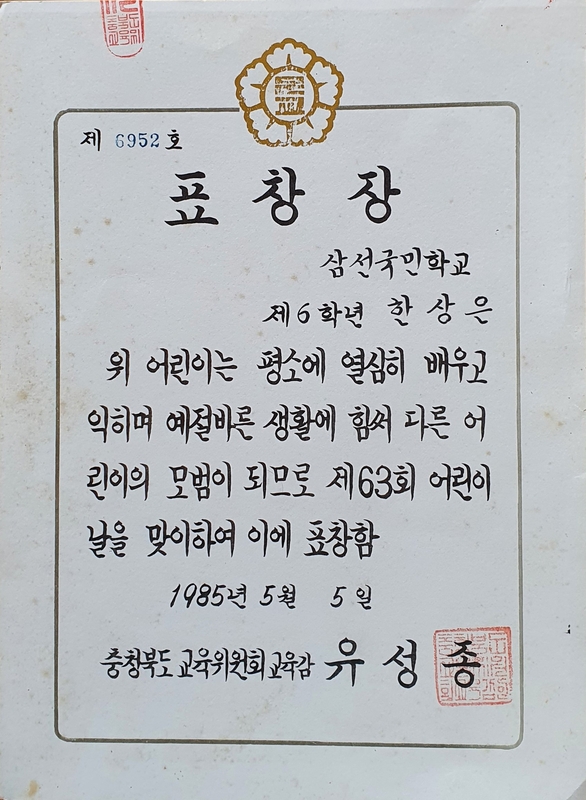 제 6952 호
표창장
삼선국민학교
제6학년 한상은
위 어린이는 평소에 열심히 배우고
익히며 예절바른 생활에 힘써 다른 어
린이의 모범이 되므로 제63회 어린이
날을 맞이하여 이에 표창함
1985년 5월 5일
충청북도교육위원회교육감 유성종